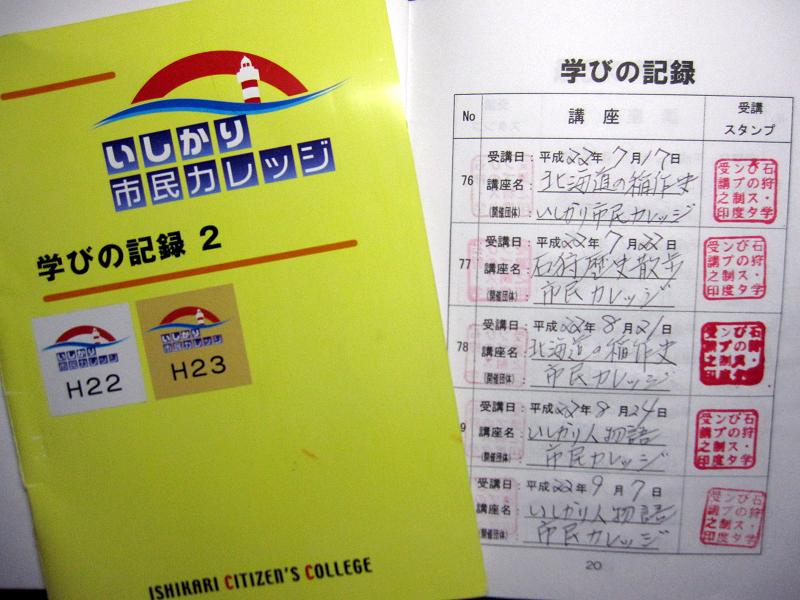 いしかり
市民カレッジ
学びの記録 2
いしかり
市民カレッジ
H22
いしかり
市民カレッジ
H23
ISHIKARI CITIZEN'S COLLEGE
学びの記録
No 講 座 受講
スタンプ
76 受講日：平成22年 7月17日
講座名：北海道の稲作史
(開催団体) いしかり市民カレッジ
77 受講日：平成22年 7月22日
講座名：石狩歴史散歩
(開催団体) 市民カレッジ
78 受講日：平成22年 8月21日
講座名：北海道の稲作史
(開催団体) 市民カレッジ
9 受講日：平成22年 8月24日
講座名：いしかり人物語
(開催団体) 市民カレッジ
受講日：平成22年 9月7日
講座名：いしかり人物語
(開催団体) 市民カレッジ
20